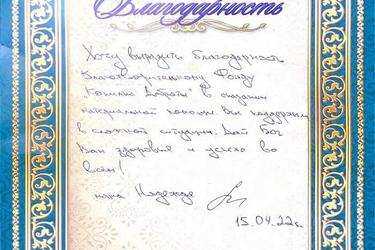 Благодарность
Хочу выразить благодарность
Благотворительному Фонду
"Копилка Доброты" в оказании
материальной помощи. Вы поддержали
в сложной ситуации. Дай Бог
Вам здоровья и успеха во
всём!
мама Надежде
15.04.22г.